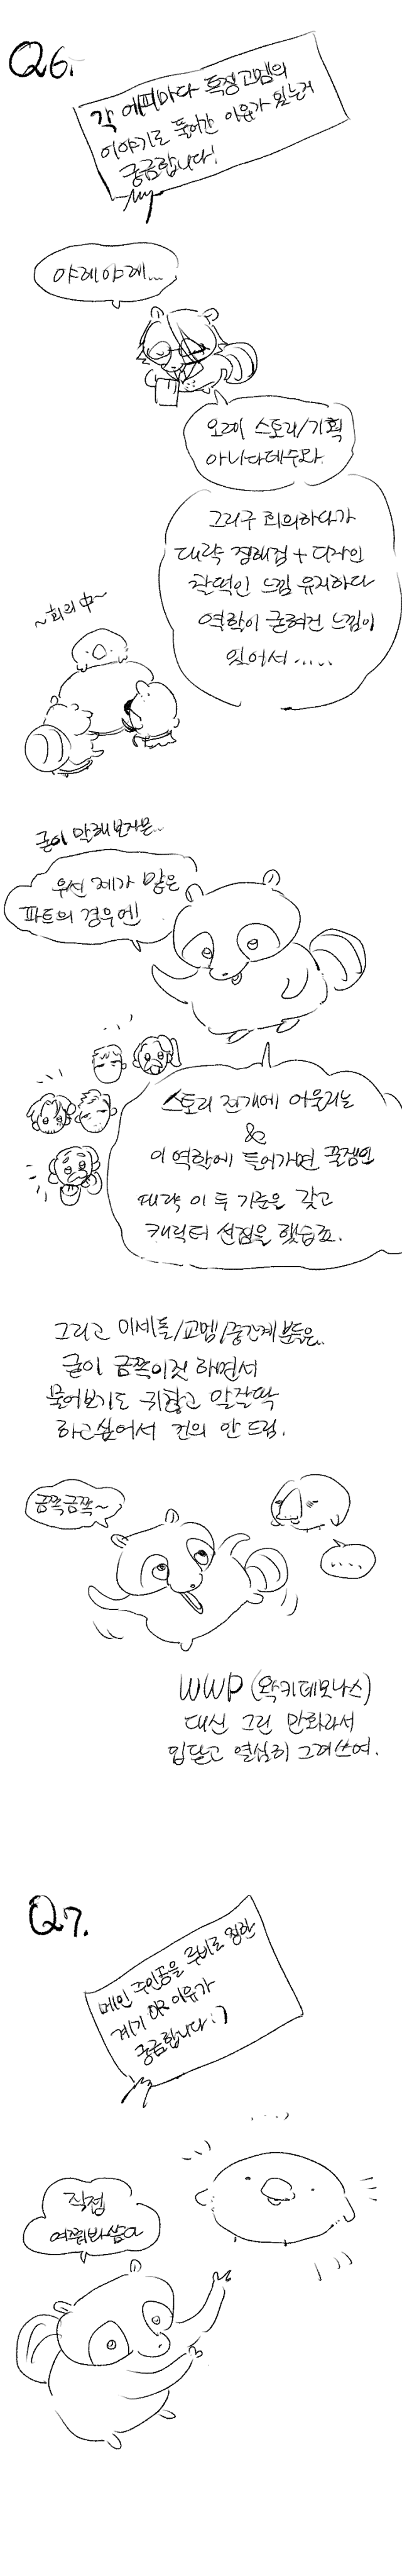 Q6.
각 에피마다 특정 고멤의
이야기로 풀어간 이유가 있는거
궁금합니다!
야레야레...
오레 스토리/기획
아니다데수와.
그리구 회의하다가
대략 정해검 + 디자인
찰떡인 느낌 유지하다
역할이 굳혀건 느낌이
있어서.....
~회의中~
굳이 말해보자문..
우선 제가 맡은
파트의 경우엔!
스토리 전개에 어울리는
&
이 역학에 들어가면 꿀잼인
대략 이 두 기준은 갖고
캐릭터 선정을 했습죠.
그리고 이세돌/교멤/중간계 분들은..
굳이 금쪽이짓 하면서
물어보기도 귀찮고 말잘딱
하고싶어서 건의 안 드림.
금쪽금쪽~
....
WWP (왁키데모나스)
대신 그린 만화라서
입닫고 열심히 그려쓰여.
Q7.
메인 주인공을 루비로 정한
계기 OR 이유가
궁금합니다 :)
직접
여쭤봐씀다